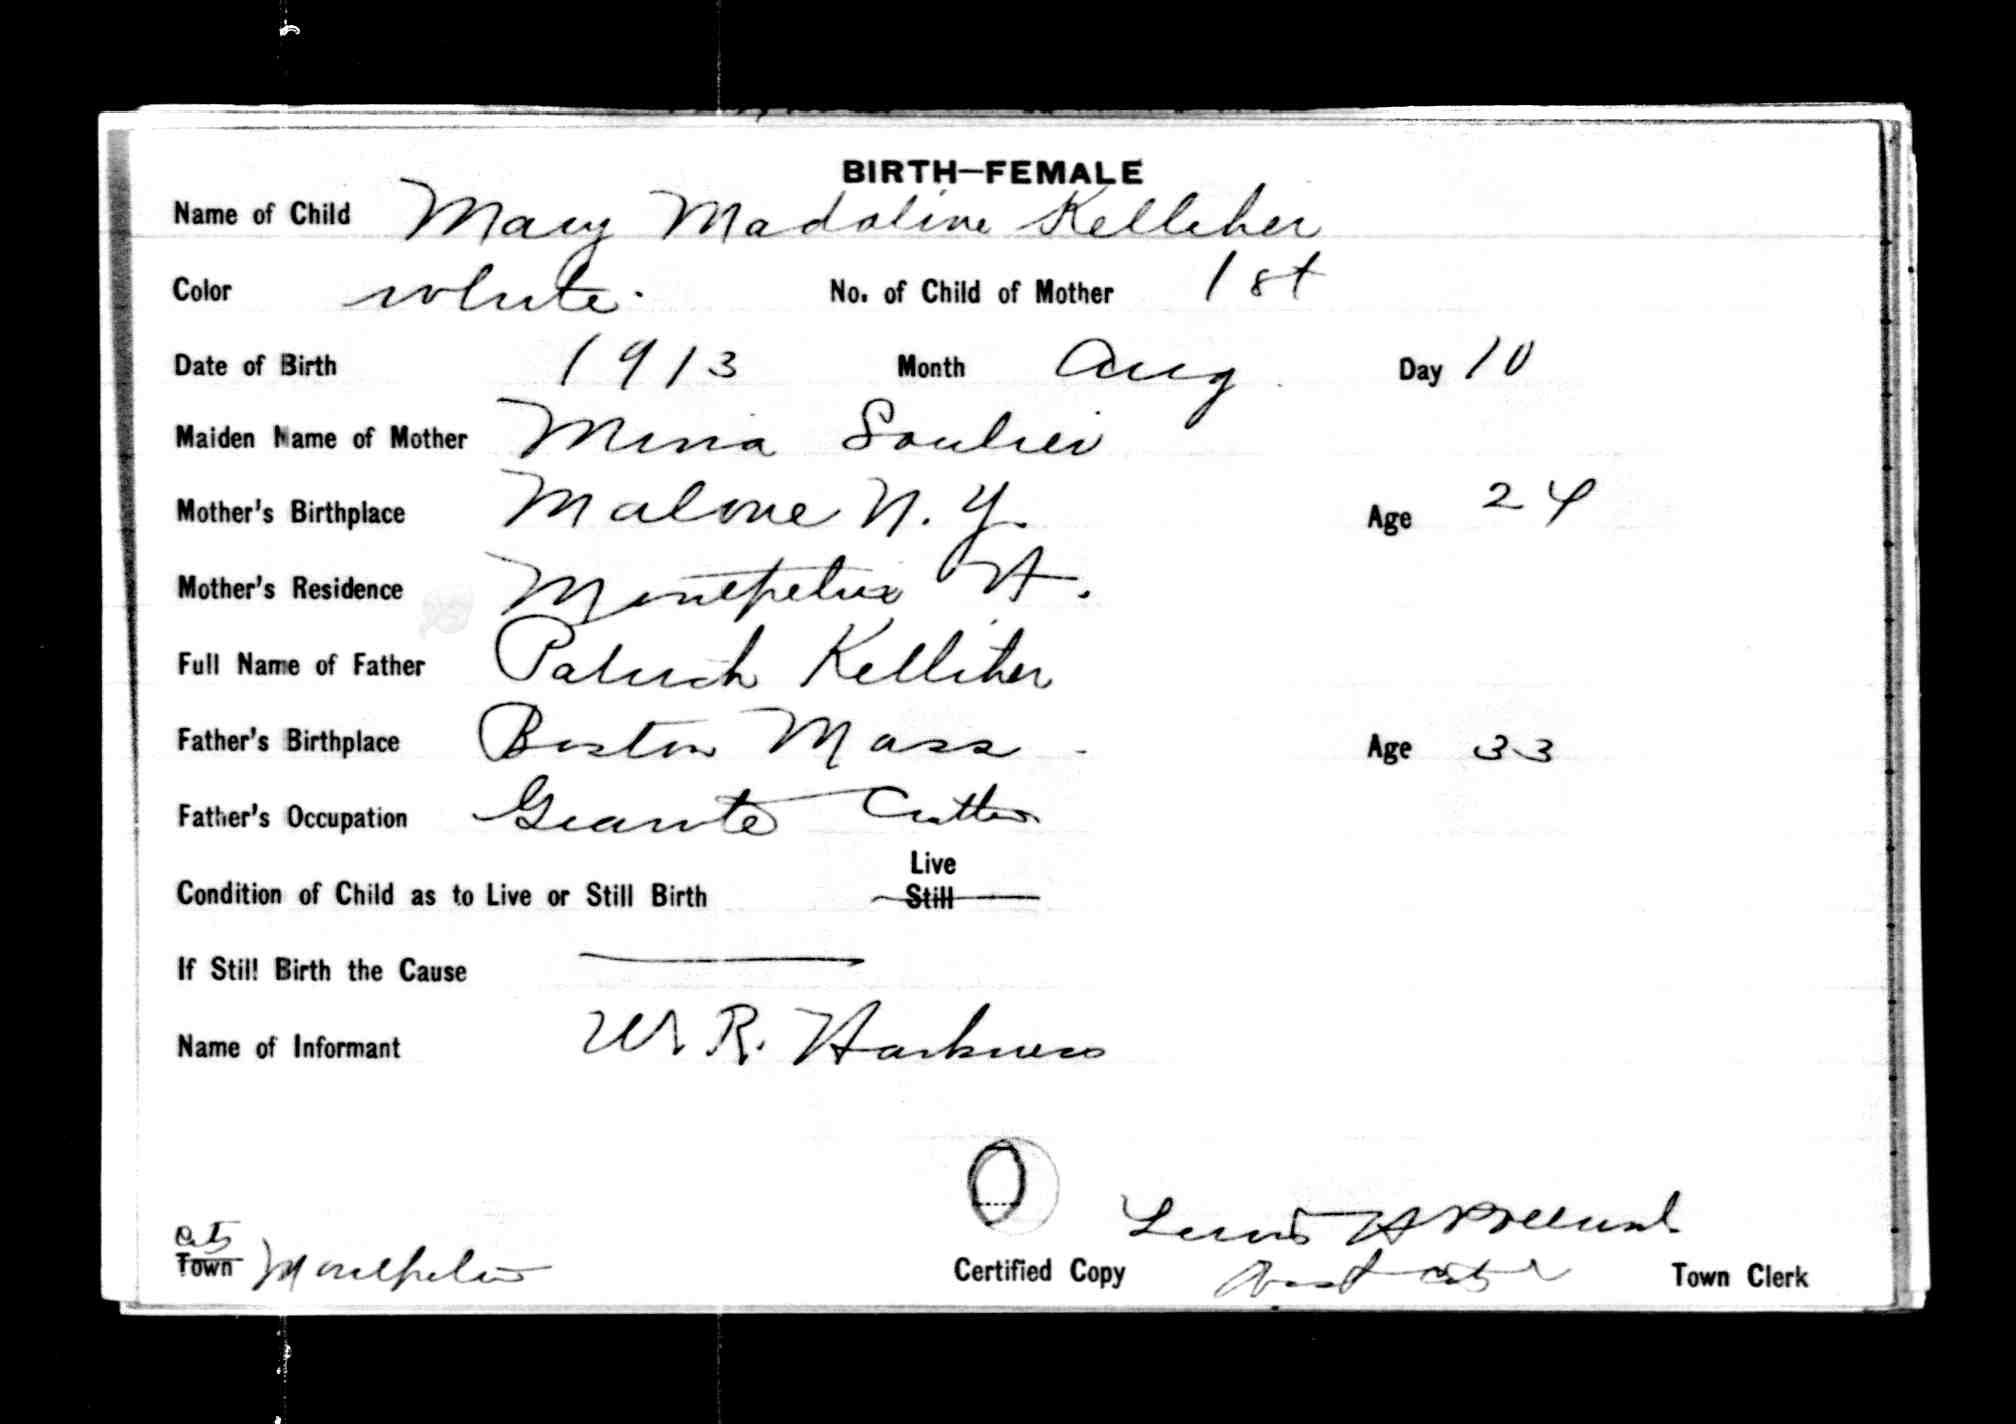 BIRTH—FEMALE
Name of Child Mary Madoline Kelliher
Color White. No. of Child of Mother 1st
Date of Birth 1913 Month Aug. Day 10
Maiden Name of Mother Mina Soulier
Mother's Birthplace Malone N.Y. Age 24
Mother's Residence Montpelier Vt.
Full Name of Father Patrick Kelliher
Father's Birthplace Boston Mass Age 33
Father's Occupation Granite Cutter
Live
Condition of Child as to Live or Still Birth Still
If Still Birth the Cause
Name of Informant W. R. Harkness
City
Town Montpelier
Certified Copy Asst City Town Clerk